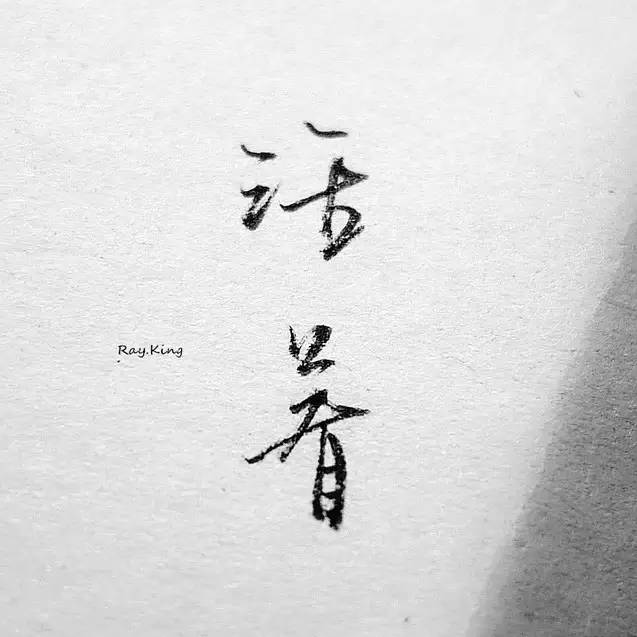 活着
Ray.King